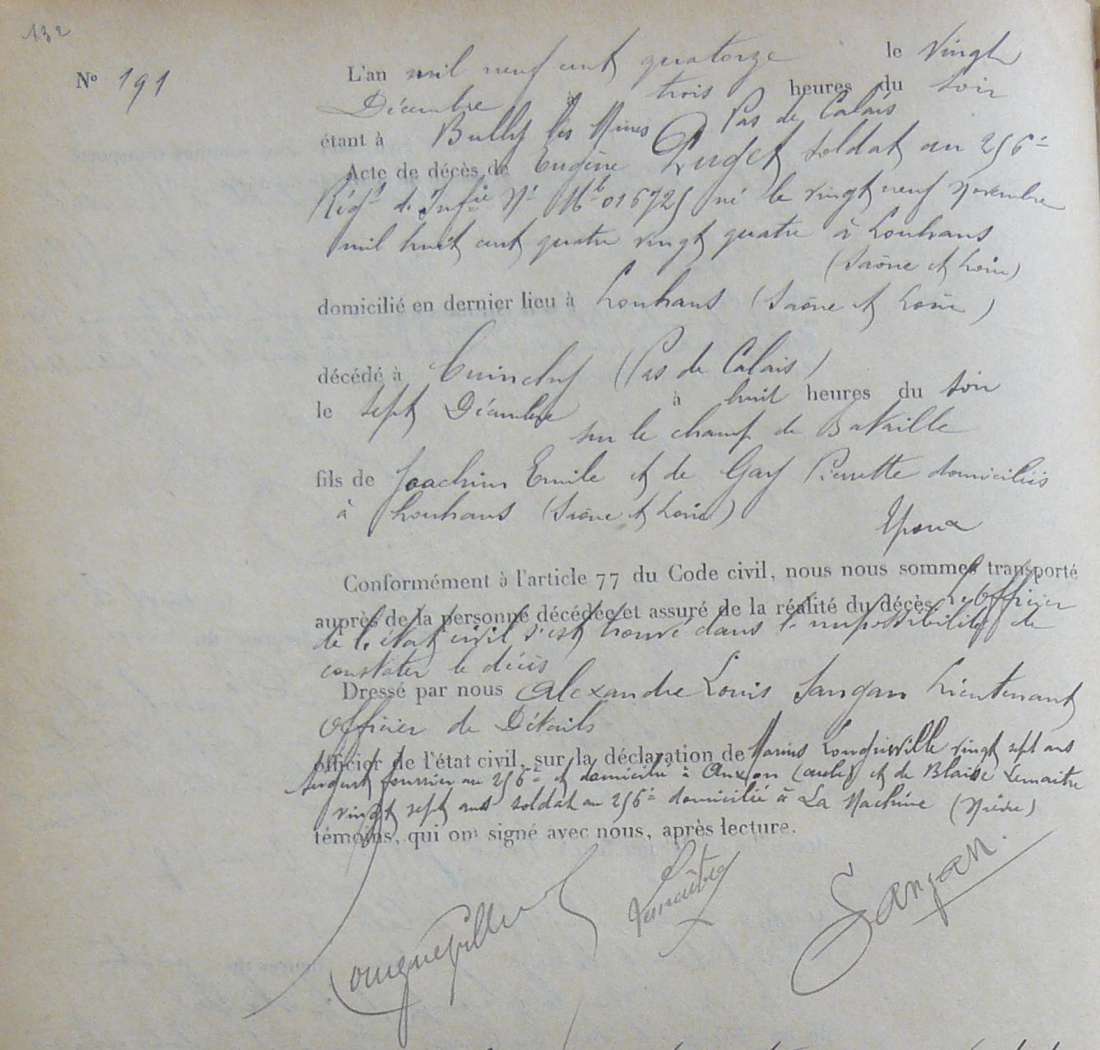 132
N° 191
L'an mil neuf cent quatorze le Vingt
Décembre à trois heures du Soir
étant à Bully les Mines Pas de Calais
Acte de décès de Eugène Puget soldat au 256e
Régt d'Infie Nº Mle 016725 né le vingt neuf Novembre
mil huit cent quatre vingt quatre à Louhans
(Saône et Loire)
domicilié en dernier lieu à Louhans (Saône et Loire)
décédé à Cuinchy (Pas de Calais)
le sept Décembre à huit heures du Soir
sur le champ de Bataille
fils de Joachim Emile et de Gay Pierrette domiciliés
à Louhans (Saône et Loire)
Epoux
Conformément à l'article 77 du Code civil, nous nous sommes transporté
auprès de la personne décédée et assuré de la réalité du décès L'officier
de l'état civil s'est trouvé dans l'impossibilité de
constater le décès
Dressé par nous Alexandre Louis Sangan Lieutenant
Officier de Détails
officier de l'état civil, sur la déclaration de Marius vingt sept ans
sergent fourrier au 256e et domicilié à Auxon (aube) et de Blaise Lemaitre
vingt sept ans soldat au 256e domicilié à La Machine (Nièvre)
témoins, qui ont signé avec nous, après lecture.
Lemaître
Sangan